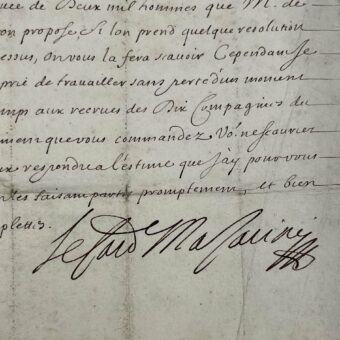 uée de Deux mil hommes que M. de
on propose si l'on prend quelque resolution
essus, on vous la fera scavoir Cependant Je
prie de travailler sans perte d'un moment
mps aux recrues des Dix Compagnies du
ment que vous commandez. Vo9 ne scauriez
ux respondre a l'estime que j'ay pour vous
les faisant partir promptement, et bien
plettes.
Le Card. Mazarini